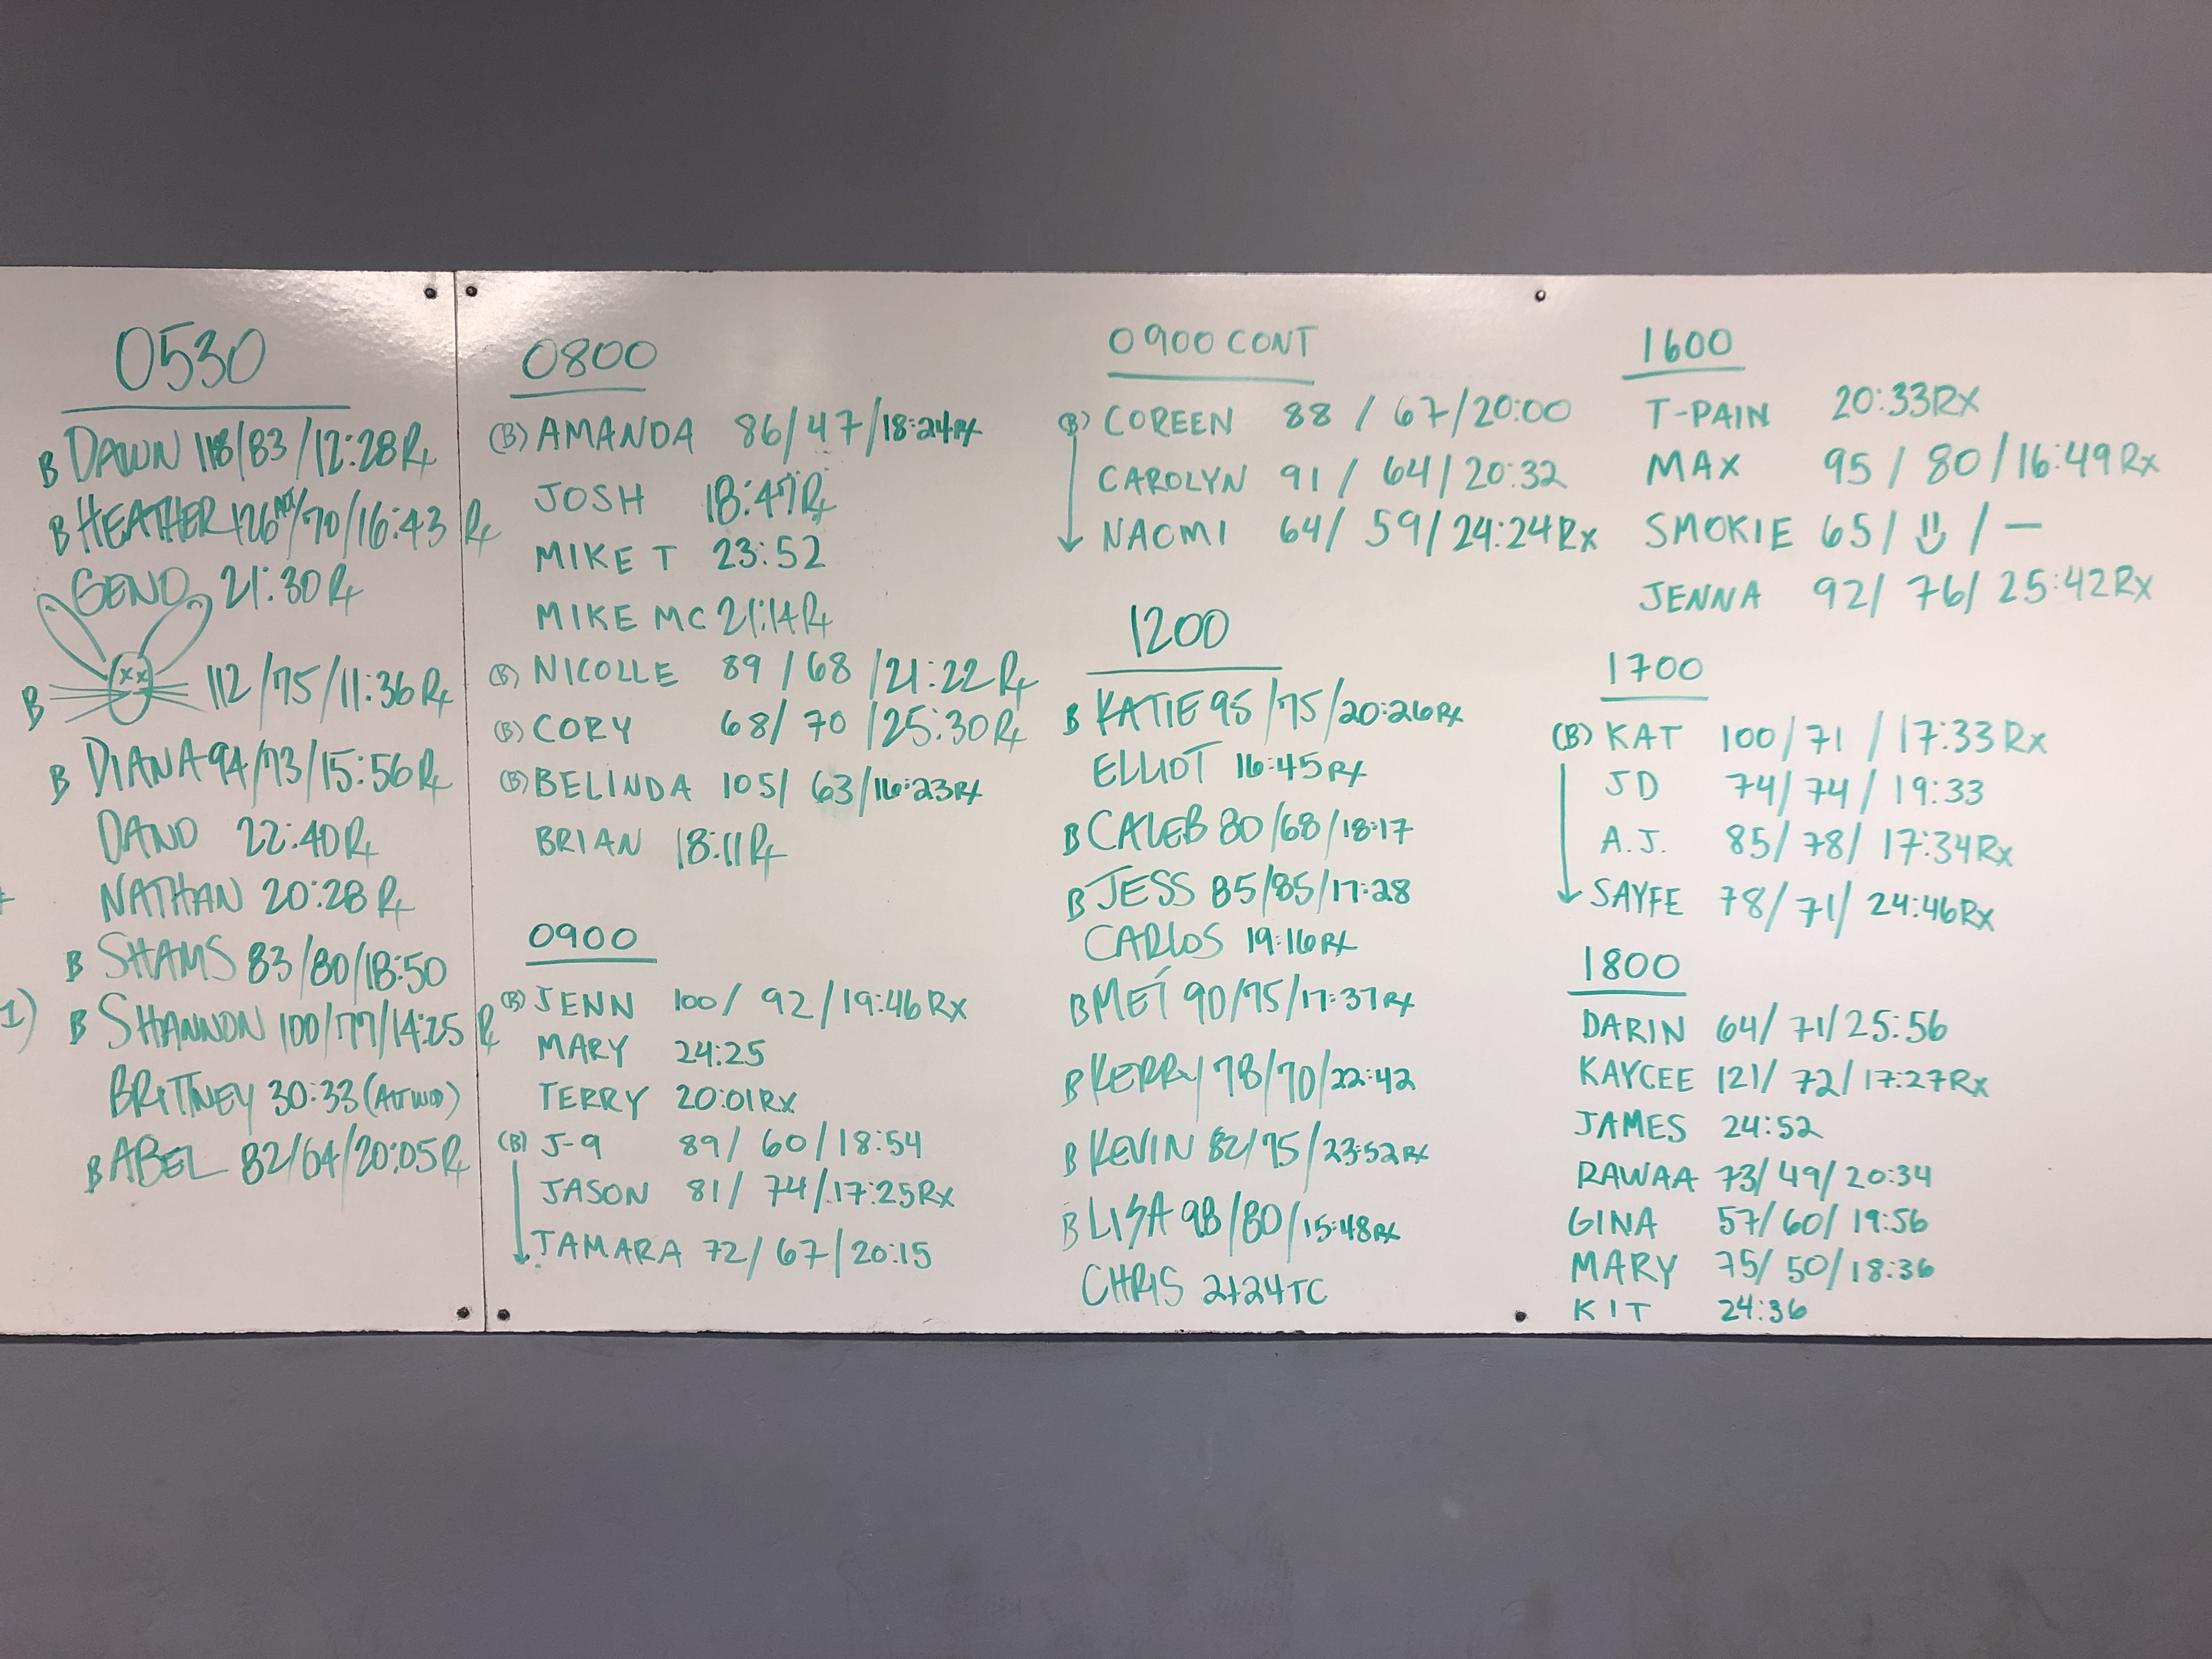 0530
B DAWN 118/83/12:28 Rx
B HEATHER 126/70/16:43 Rx
GENO 21:30 Rx
B 112/75/11:36 Rx
B DIANA 94/73/15:56 Rx
DANO 22:40 Rx
NATHAN 20:28 Rx
B SHAMS 83/80/18:50
1) B SHANNON 100/77/14:25 Rx
BRITTNEY 30:33 (ALT WOD)
B ABEL 82/64/20:05 Rx
0800
(B) AMANDA 86/47/18:24 Rx
JOSH 18:47 Rx
MIKE T 23:52
MIKE MC 21:14 Rx
(B) NICOLLE 89/68/21:22 Rx
(B) CORY 68/70/25:30 Rx
(B) BELINDA 105/63/16:23 Rx
BRIAN 18:11 Rx
0900
(B) JENN 100/92/19:46 Rx
MARY 24:25
TERRY 20:01 RX
(B) J-9 89/60/18:54
JASON 81/74/17:25 Rx
TAMARA 72/67/20:15
0900 CONT
(B) COREEN 88/67/20:00
CAROLYN 91/64/20:32
NAOMI 64/59/24:24 Rx
1200
B KATIE 95/75/20:26 Rx
ELLIOT 16:45 Rx
B CALEB 80/68/18:17
B JESS 85/85/17:28
CARLOS 19:16 Rx
B MEI 90/75/17:37 Rx
B KERRY 78/70/22:42
B KEVIN 82/75/23:52 Rx
B LISA 98/80/15:48 Rx
CHRIS 2+24 TC
1600
T-PAIN 20:33 RX
MAX 95/80/16:49 Rx
SMOKIE 65/☺/—
JENNA 92/76/25:42 Rx
1700
(B) KAT 100/71/17:33 Rx
JD 74/74/19:33
A.J. 85/78/17:34 Rx
SAYFE 78/71/24:46 Rx
1800
DARIN 64/71/25:56
KAYCEE 121/72/17:27 Rx
JAMES 24:52
RAWAA 73/49/20:34
GINA 57/60/19:56
MARY 75/50/18:36
KIT 24:36